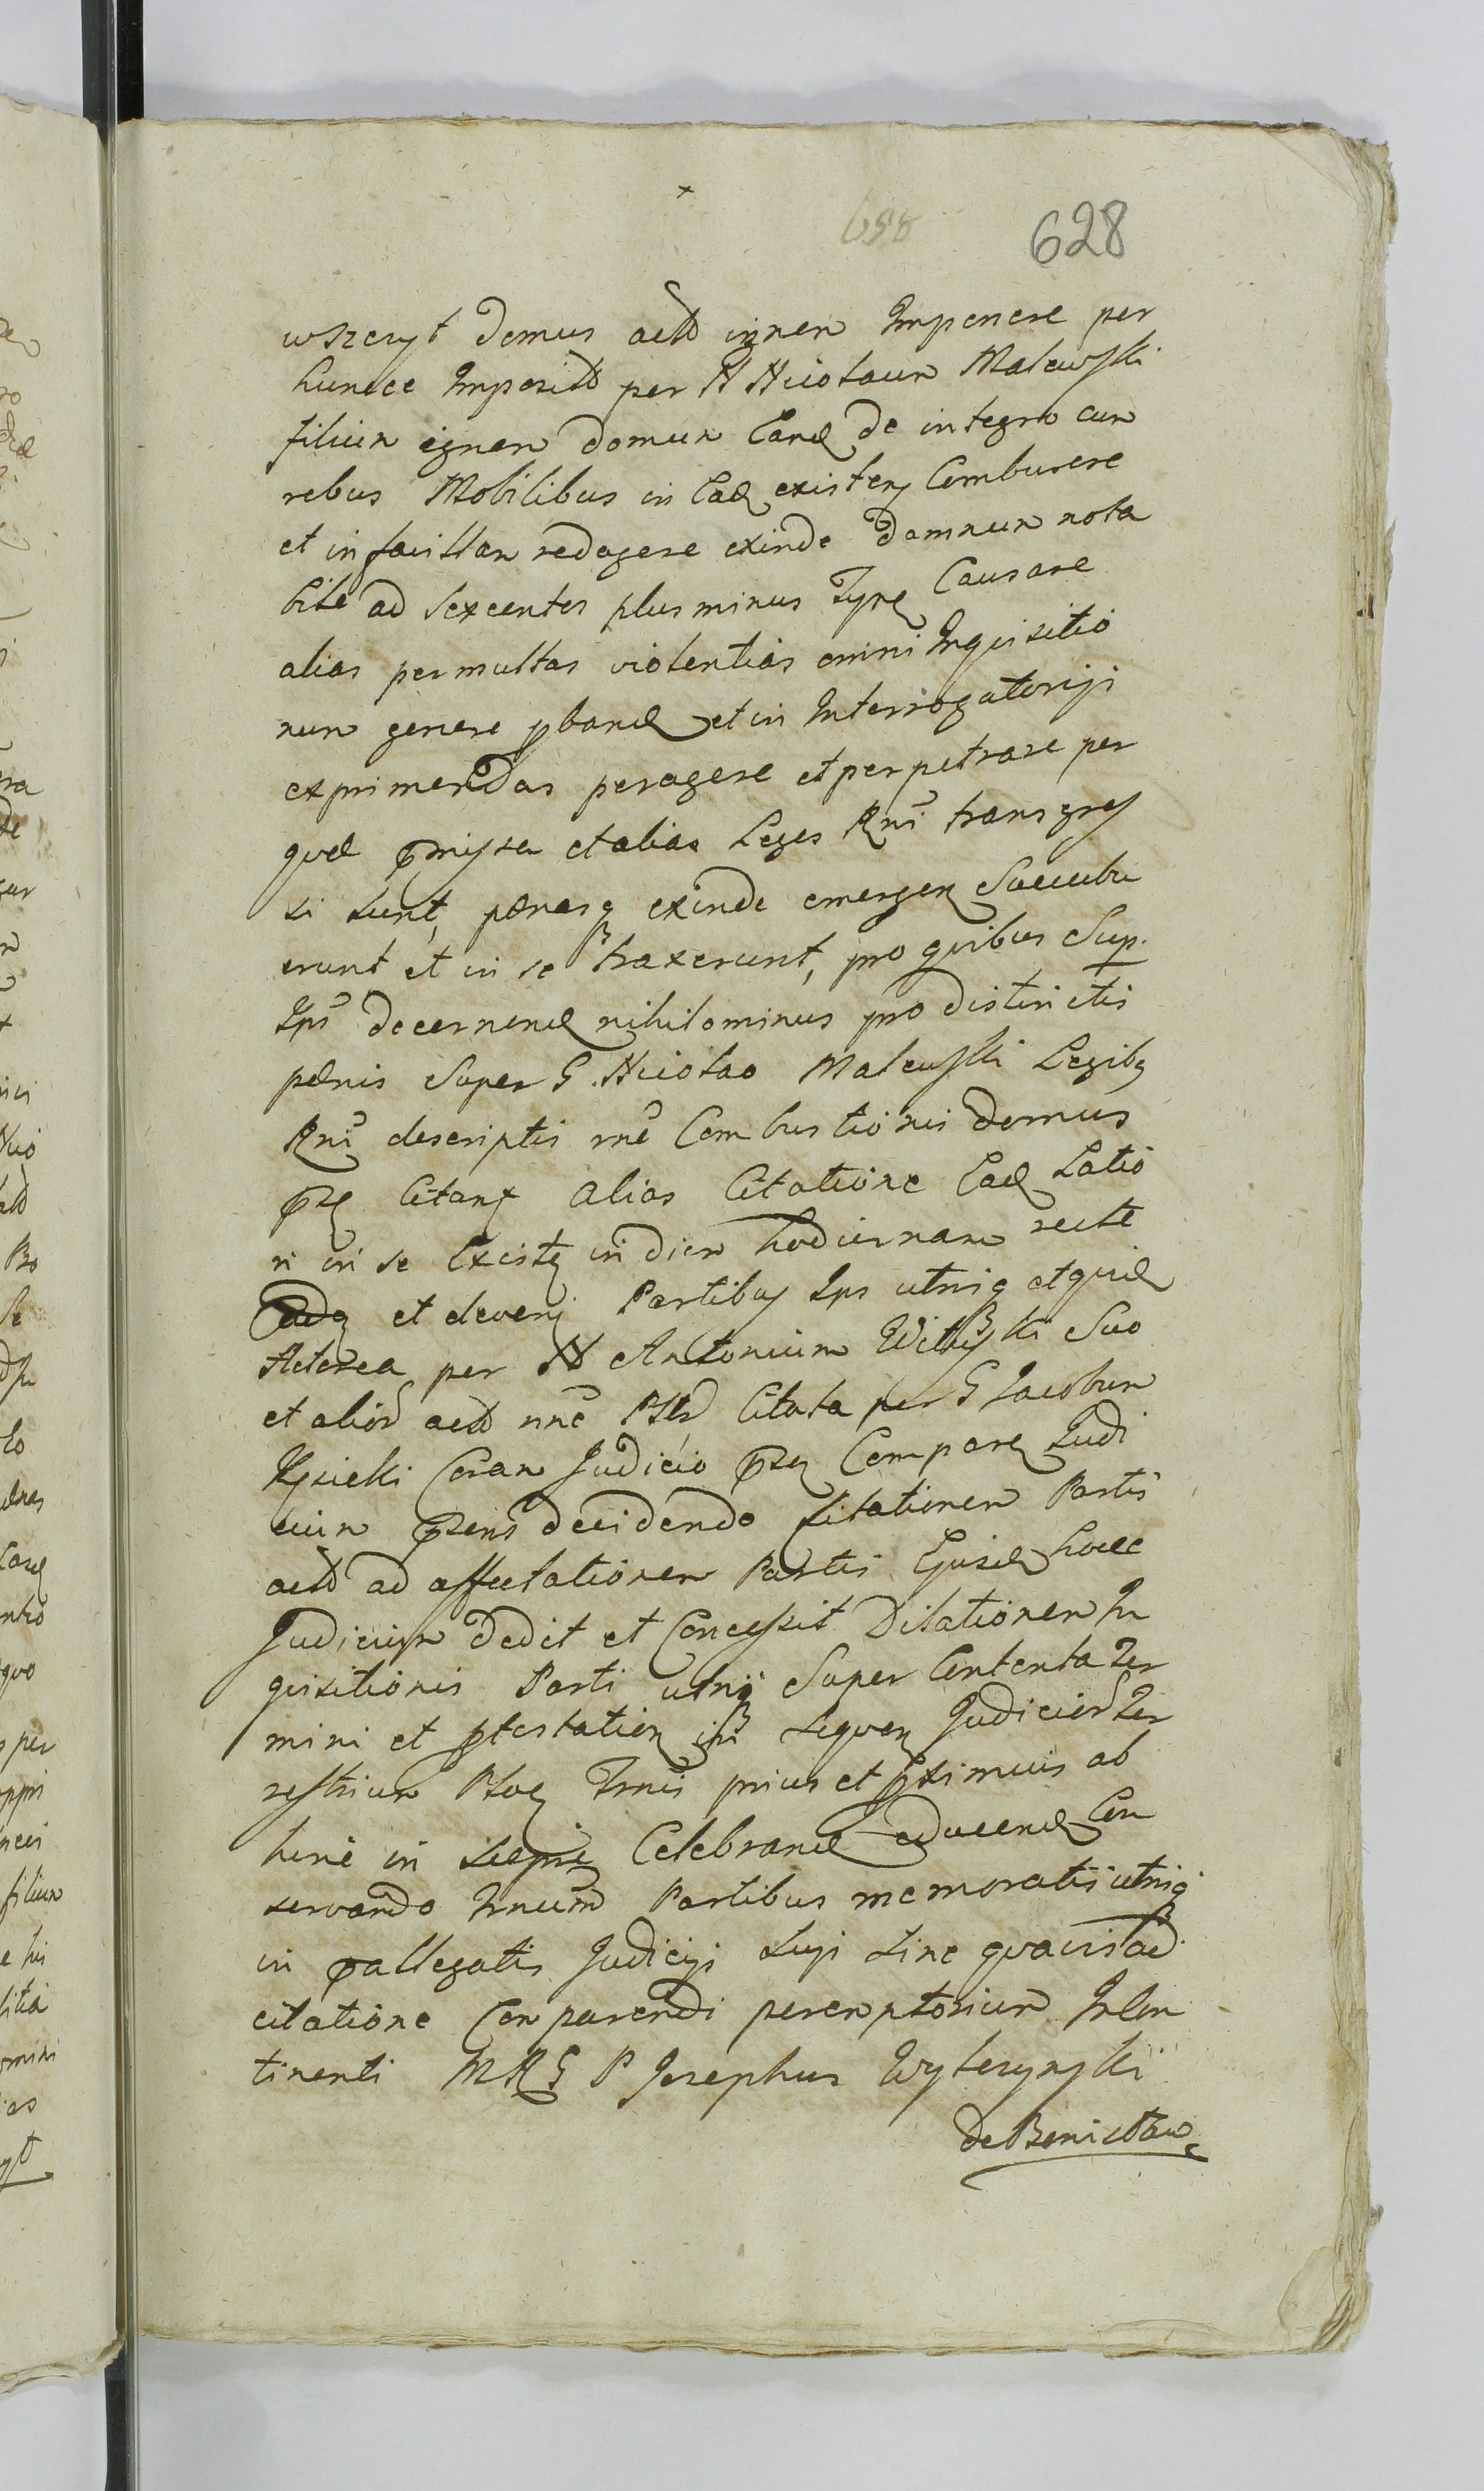 698 628
wszczyt domus actd ignem Imponere per
huncce Impositd per N Nicolaum Malewski
filium ignem domum Eand de integro cum
rebus Mobilibus in Ead existen Comburere
et in favillam redagere exinde damnum nota
bile ad sexcentos plus minus Tyn Causare
alias permultas violentias omni Inquisitio
num genere pband et in Interrogatorijs
exprimendas peragere et perpetrare per
que pmissa et alias Leges Rni transgres
si sunt, penasq exinde emergen Succubu
erunt et in se traxerunt, pro quibus Sup.
Ips decernend nihilominus pro districtis
penis Super G. Nicolao Malewski Legibq
Rni descriptis rne Combustionis domus
pzn Citant alias Citatione Ead Latio
ri in se Existen in diem hodiernam recte
Cadn et deveni Partibus Ips utriq et quid
Actorea per N Antonium suo
et aliord actd nne Citata per G Jacobum
Coram Judicio pzn Comparen Judi
cium pzens decidendo Citationem Partis
actd ad affectationem Partis Ejusd hocce
Judicium dedit et Concessit Dilationem In
quisitionis Parti utriq Super Contenta Ter
mini et ptestation in sequen Judiciord Ter
restrium Ploc Trmis prius et pximius ab
hinc in Celebrand adducend Con
servando Trnumd Partibus memoratis utriq
in pallegatis Judicijs Lujs sine quavis ad
citatione Comparendi peremptorium Incon
tinenti M R G P Josephus
de